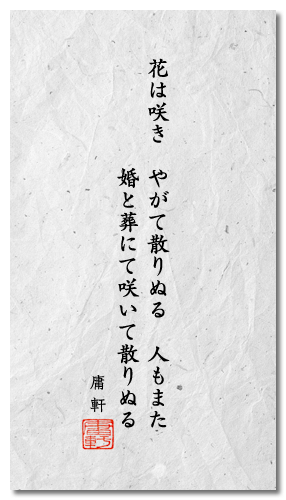 花は咲き　やがて散りぬる　人もまた
婚と葬にて咲いて散りぬる
庸軒
庸軒